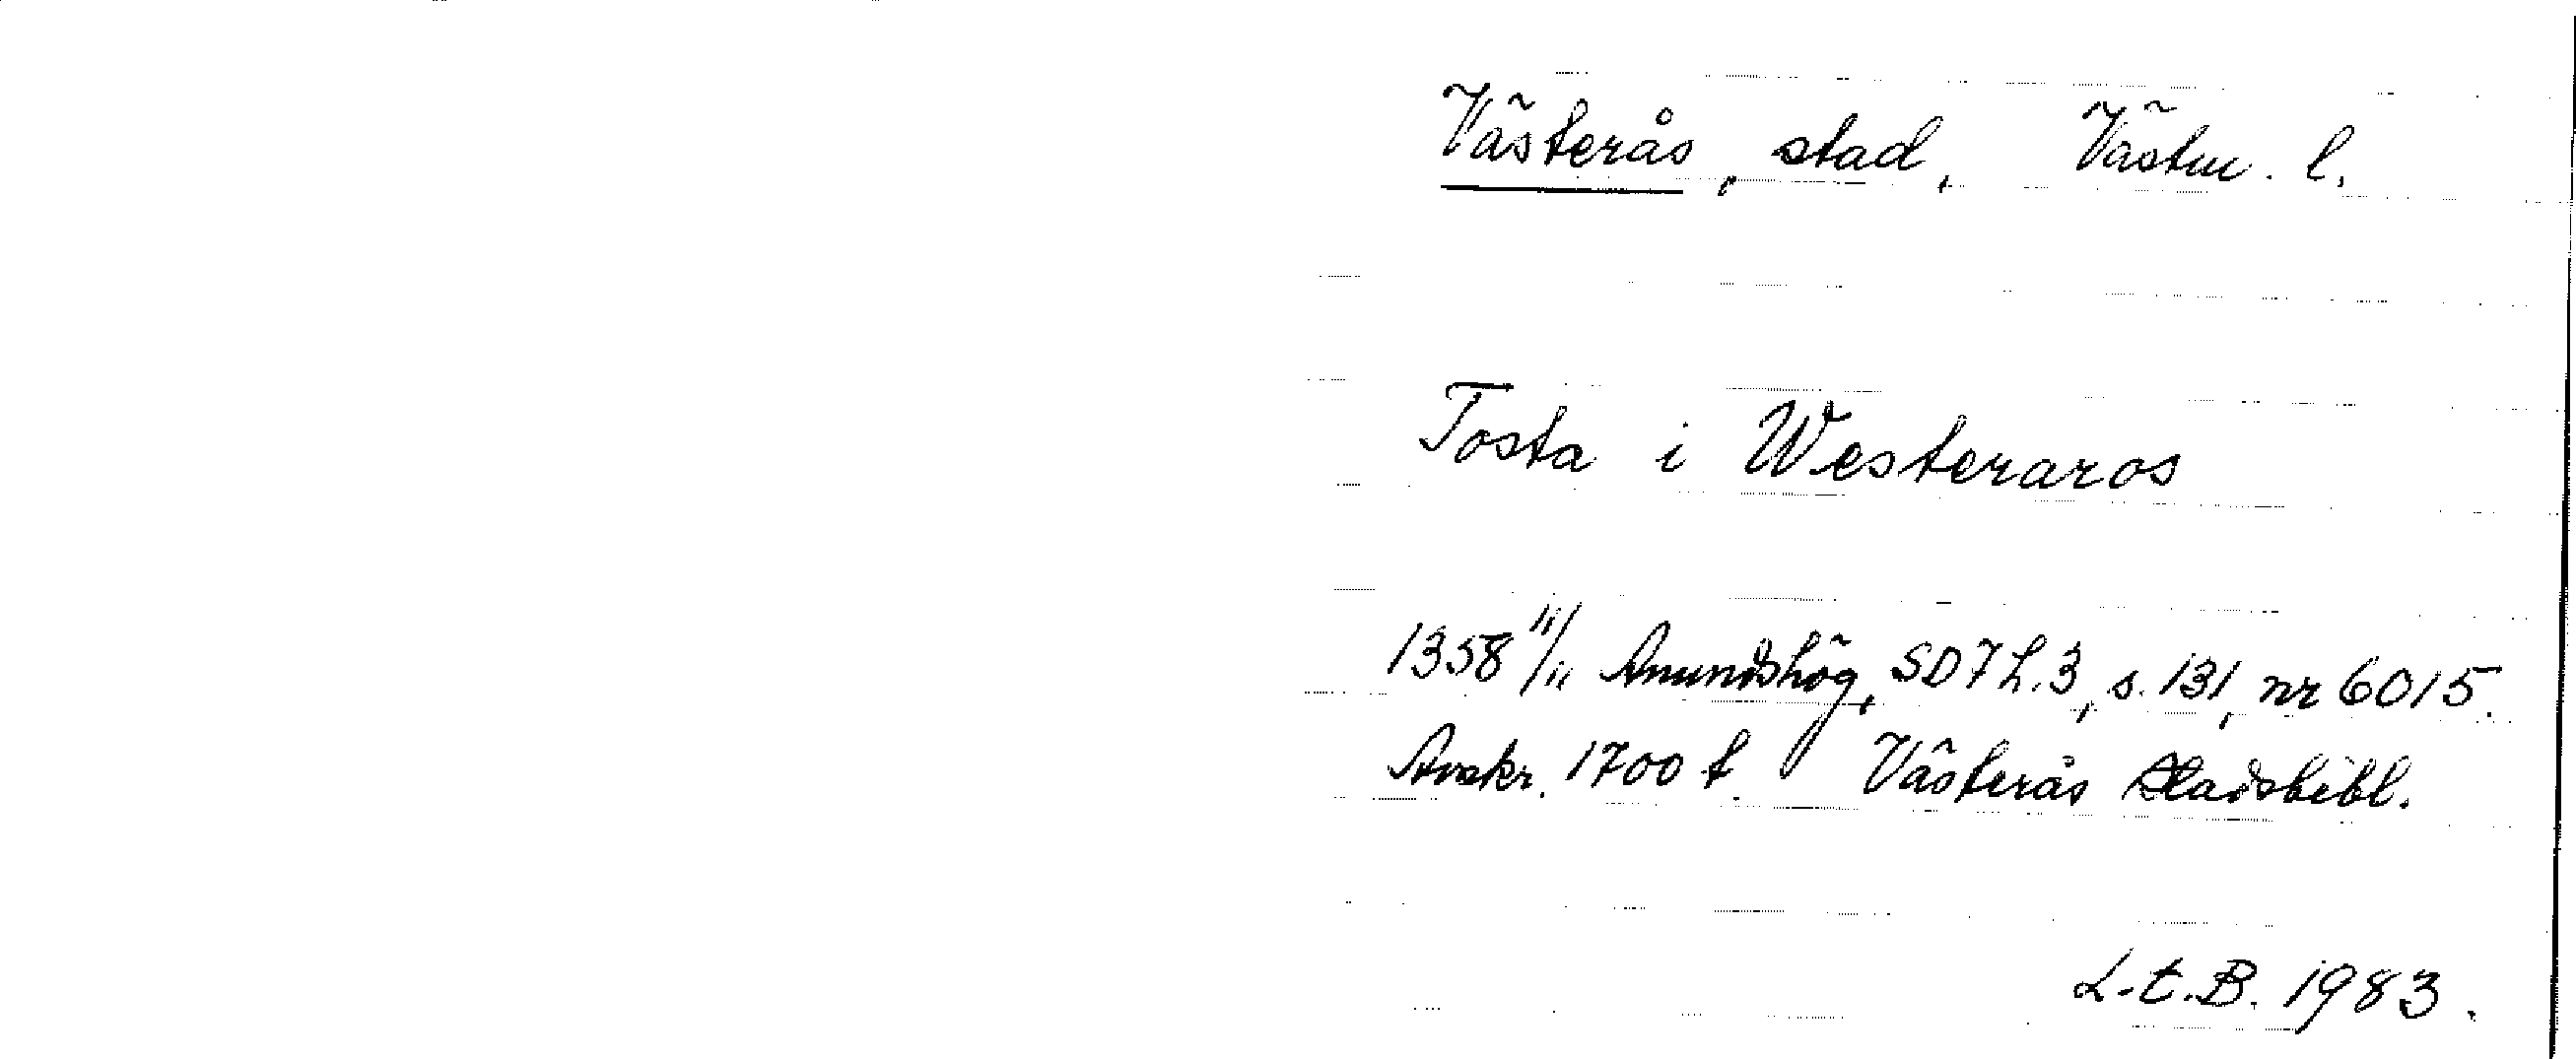 Västerås, stad, Västm. l.
Tosta i Westeraros
1358 11/11 Anundshög, SD 7 h. 3, s. 131, nr 6015.
Avskr. 1700 t. Västerås Stadsbibl.
L.t.B. 1983.